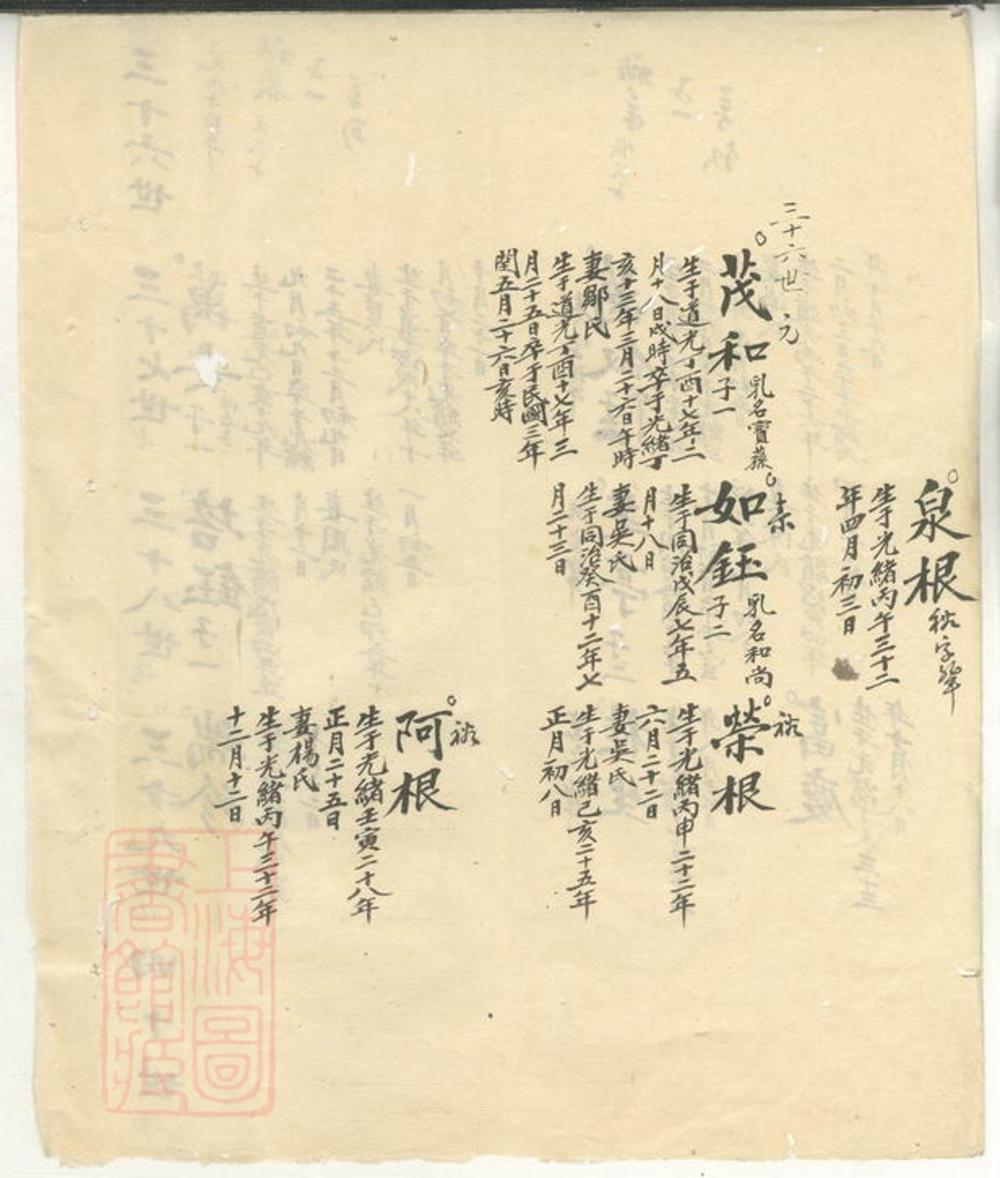 泉根
生于光緒丙午三十二
年四月初三日
三十六世 元
茂和子一
乳名寶葆
生于道光丁酉十七年二
月十八日戌時卒于光緒丁
亥十三年三月二十六日午時
妻鄒氏
生于道光丁酉十七年三
月二十五日卒于民國三年
閏五月二十六日亥時
素
如鈺子二
乳名和尚
生于同治戊辰七年五
月十八日
妻吳氏
生于同治癸酉十二年七
月二十三日
裕
榮根
生于光緒丙申二十二年
六月二十二日
妻吳氏
生于光緒己亥二十五年
正月初八日
裕
阿根
生于光緒壬寅二十八年
正月二十五日
妻楊氏
生于光緒丙午三十二年
十二月十二日
上海圖
書館藏